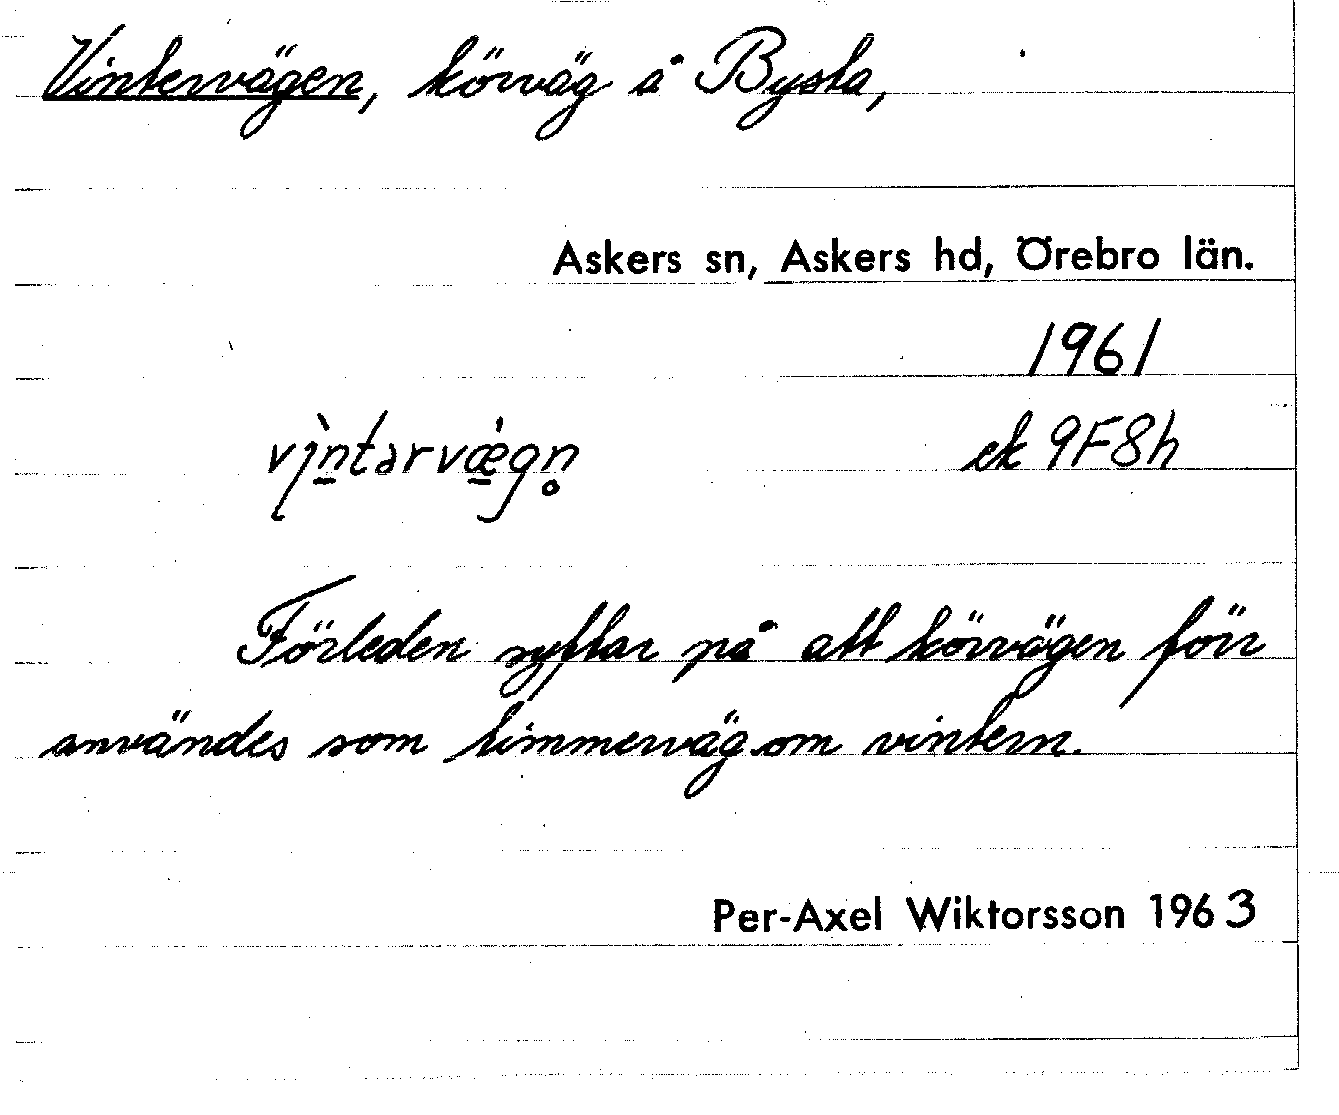 Vintervägen, körväg å Bysta,
Askers sn, Askers hd, Örebro län.
1961
vìntərvæ̀gn̥
ek 9F8h
Förleden syftar på att körvägen förr
användes som timmerväg om vintern.
Per-Axel Wiktorsson 1963